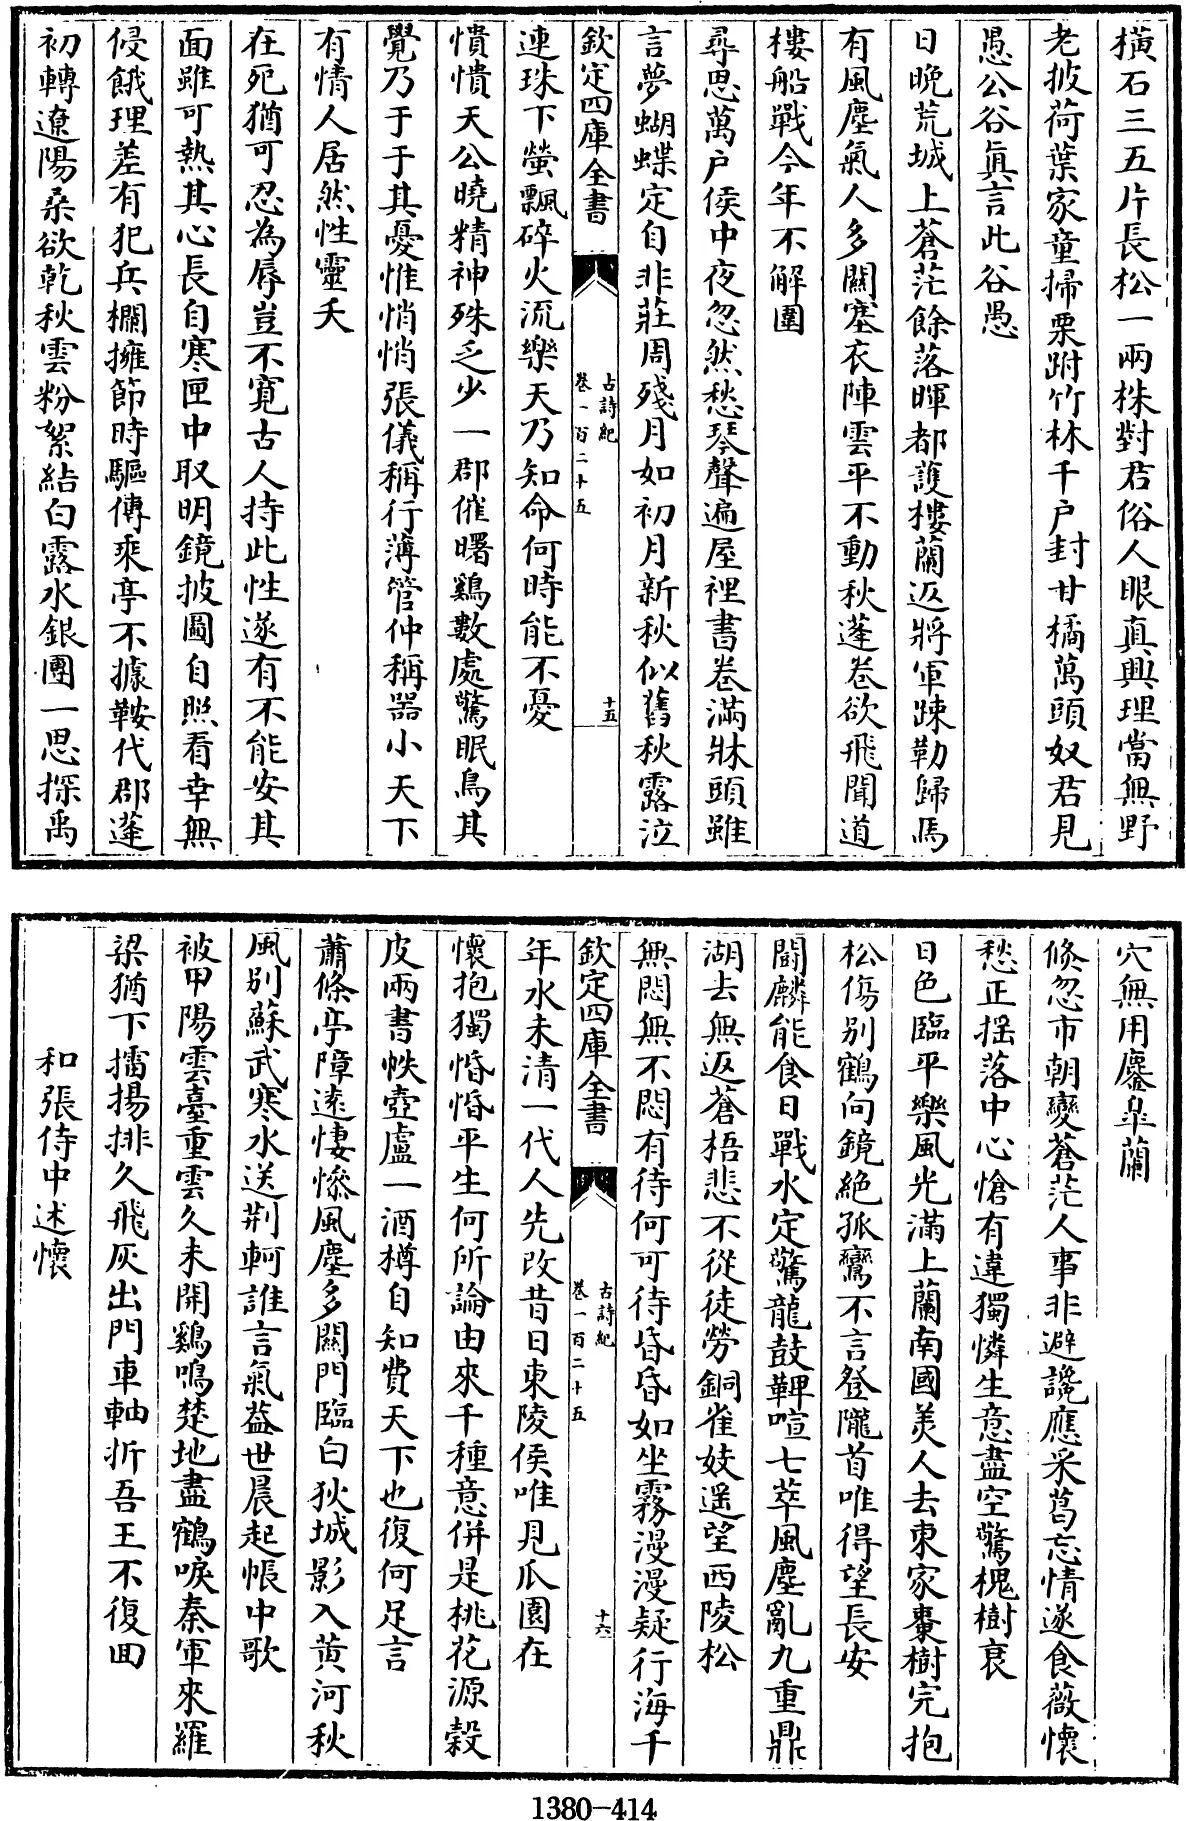 橫石三五片長松一兩株對君俗人眼真興理當無野
老披荷葉家童掃栗跗竹林千户封甘橘萬頭奴君見
愚公谷真言此谷愚
日晚荒城上蒼茫餘落暉都護樓蘭返將軍踈勒歸馬
有風塵氣人多關塞衣陣雲平不動秋蓬卷欲飛聞道
樓船戰今年不解圍
尋思萬户侯中夜忽然愁琴聲遍屋裡書卷滿牀頭雖
言夢蝴蝶定自非莊周殘月如初月新秋似舊秋露泣
欽定四庫全書
古詩紀
卷一百二十五
十五
連珠下螢飄碎火流樂天乃知命何時能不憂
憒憒天公曉精神殊乏少一郡催曙鷄數處驚眠鳥其
覺乃于于其憂惟悄悄張儀稱行薄管仲稱器小天下
有情人居然性靈夭
在死猶可忍為辱豈不寛古人持此性遂有不能安其
面雖可熱其心長自寒匣中取明鏡披圖自照看幸無
侵餓理差有犯兵欄擁節時驅傳乘亭不據鞍代郡蓬
初轉遼陽桑欲乾秋雲粉絮結白露水銀團一思探禹
穴無用鏖皐蘭
倐忽市朝變蒼茫人事非避讒應采葛忘情遂食薇懷
愁正摇落中心愴有違獨憐生意盡空驚槐樹衰
日色臨平樂風光滿上蘭南國美人去東家棗樹完抱
松傷别鶴向鏡絶孤鸞不言登隴首唯得望長安
鬬麟能食日戰水定驚龍鼓鞞喧七萃風塵亂九重鼎
湖去無返蒼梧悲不從徒勞銅雀妓遥望西陵松
無悶無不悶有待何可待昏昏如坐霧漫漫疑行海千
欽定四庫全書
古詩紀
卷一百二十五
十六
年水未清一代人先改昔日東陵侯唯見瓜園在
懷抱獨惛惛平生何所論由來千種意併是桃花源榖
皮兩書帙壺盧一酒樽自知費天下也復何足言
蕭條亭障逺悽慘風塵多關門臨白狄城影入黄河秋
風别蘇武寒水送荆軻誰言氣葢世晨起帳中歌
被甲陽雲臺重雲久未開鷄鳴楚地盡鶴唳秦軍來羅
梁猶下擂揚排久飛灰出門車軸折吾王不復囬
和張侍中述懷
1380-414